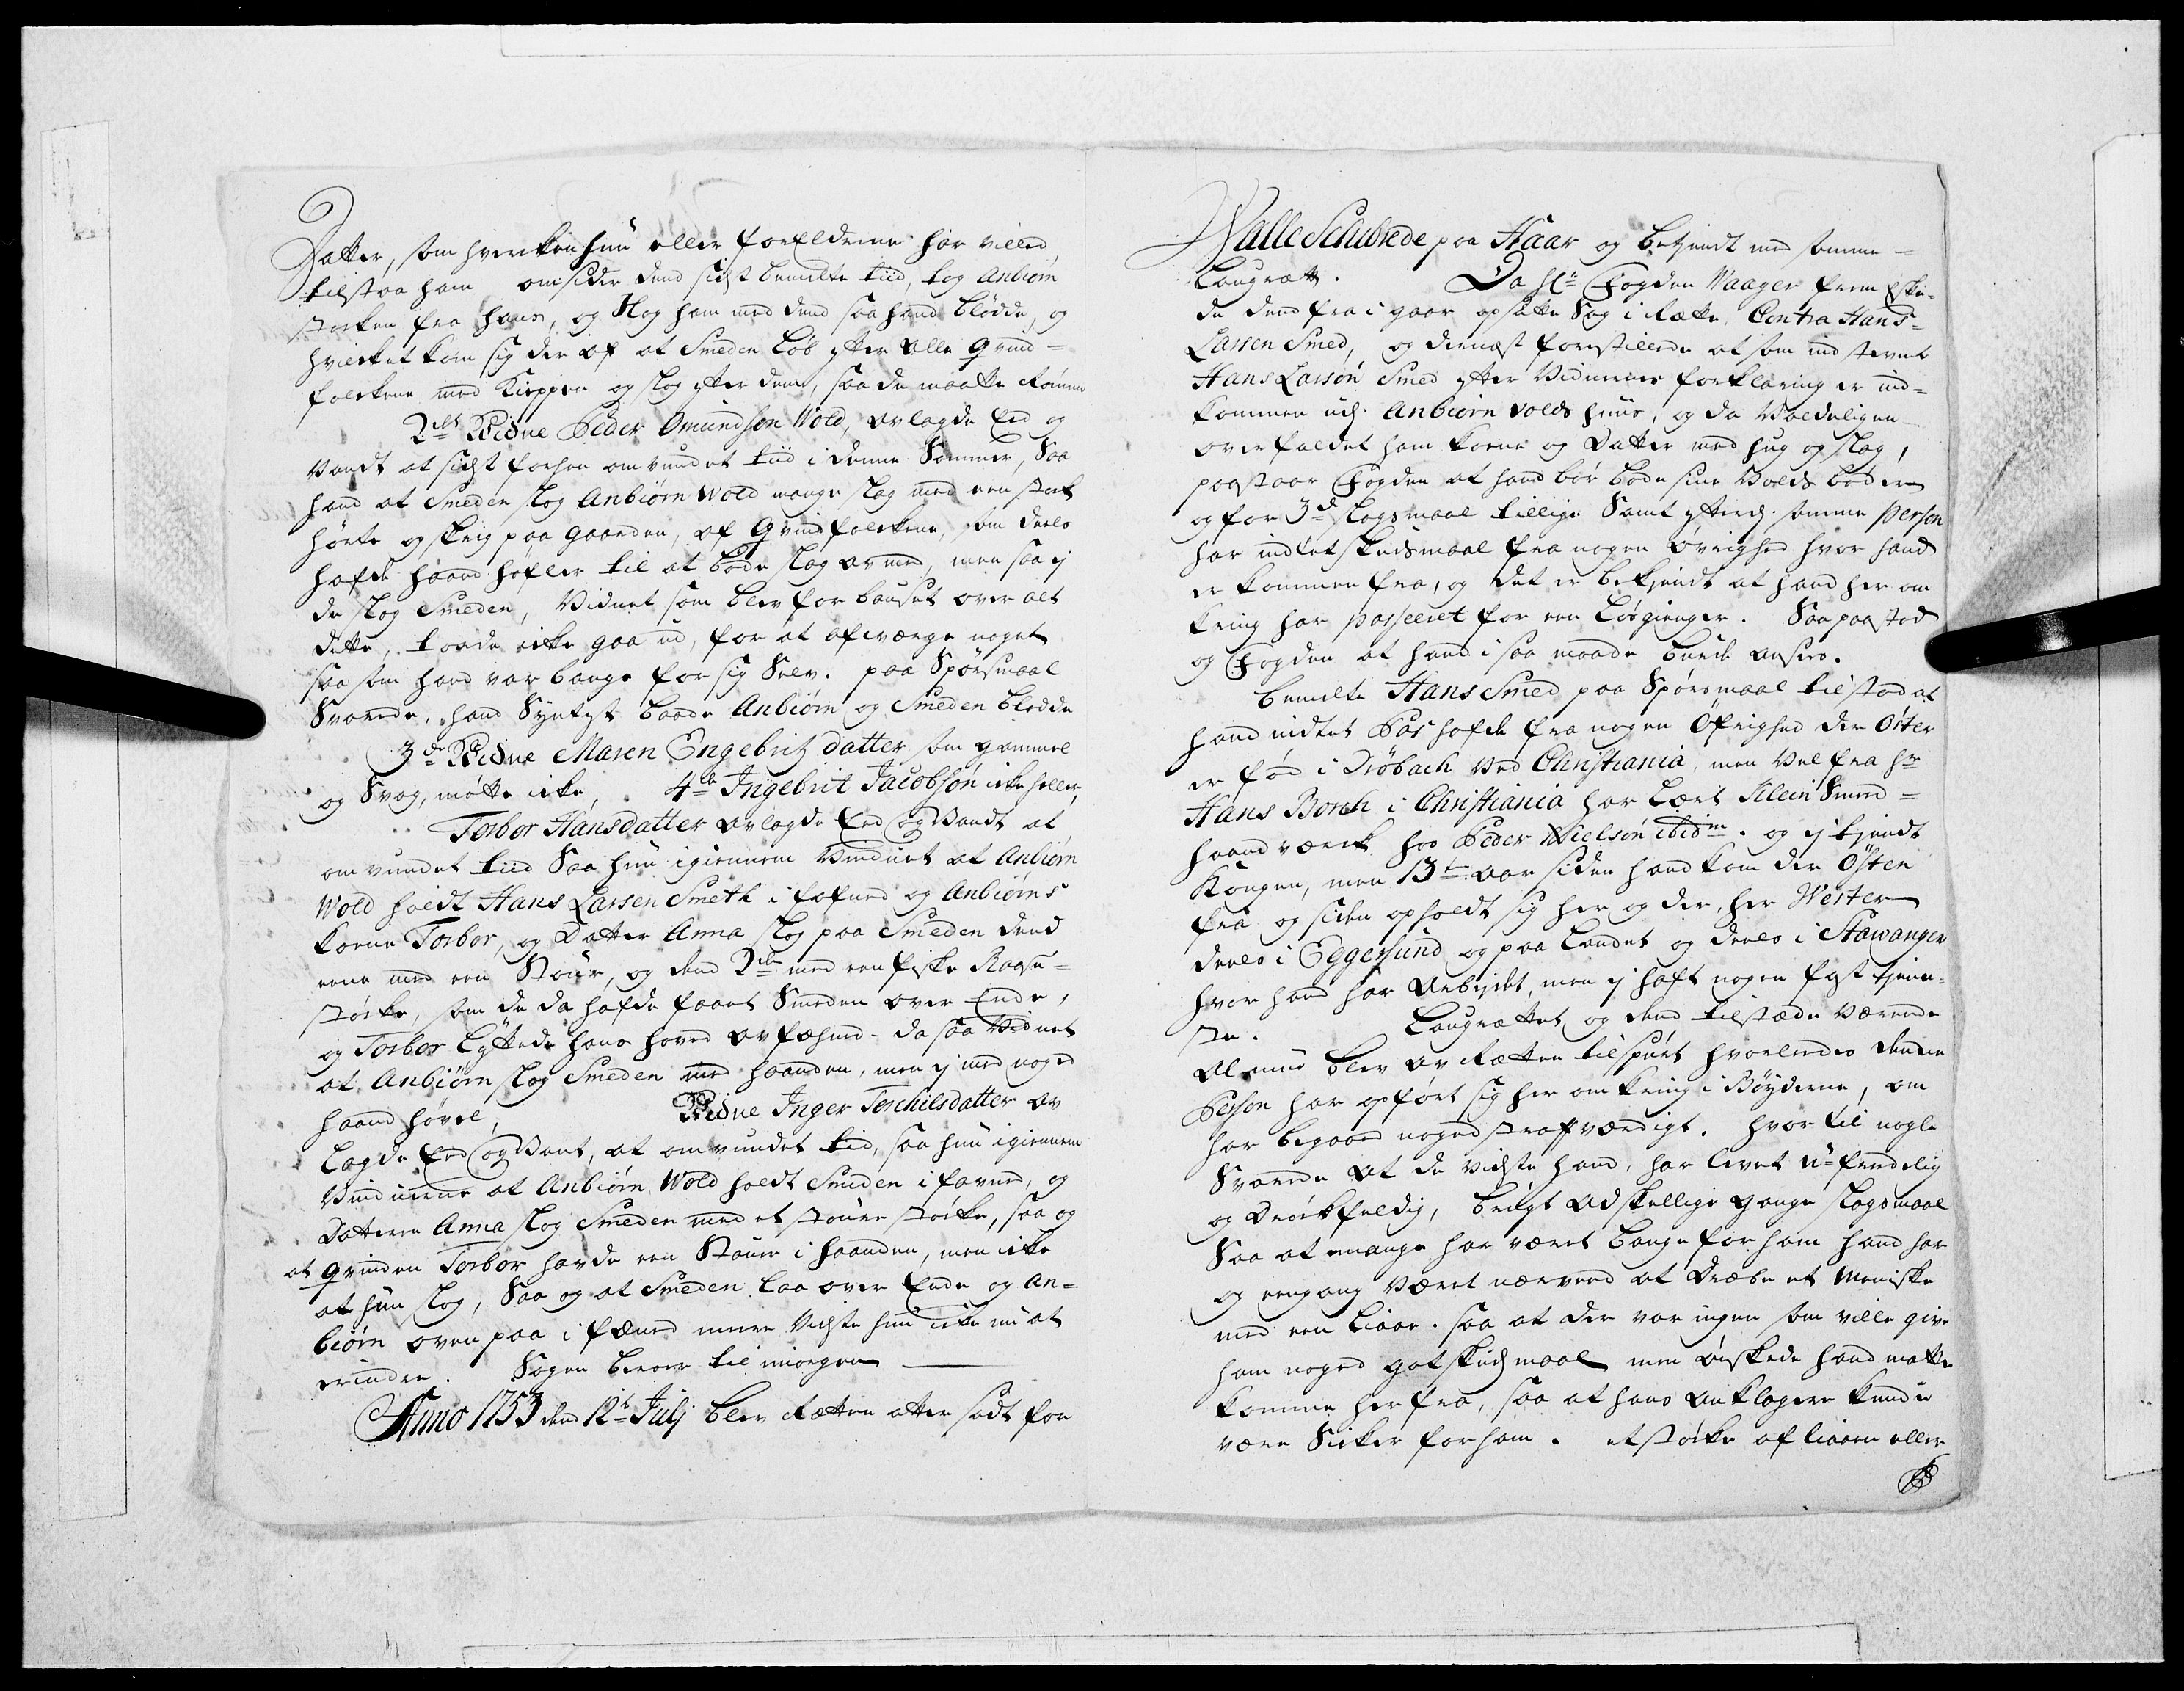 Datter, som hverken hun eller forældrene har villed
tilstaa ham omsider dend sidst bemelte tiid, tog Anbiørn
stocken fra hans, og Slog ham med dend saa hand blødde, og
hvercket kom sig der af at Smeden løb efter alle qvind=
folckene med Kieppen og slog efter dem, saa de maatte Rømme
2det Vidne Peder Omundsøn Wold, avlagde Eed og
Vandt at sidst forhen omvundet tiid i denne Sommer, Saa
hand at Smeden slog Anbiørn Wold mange slag med een stock
hørte og skrig paa gaarden, af qvindfolckene, som deels
hafde haand høfler til at bode slag av med, men saa ej
de slog Smeden, Vidnet som blev forbauset over alt
dette, torde icke gaa ud, for at afværge noget
saasom hand var bange for sig Selv. paa Spørsmaal
Svarede, hand Syntest baade Anbiørn og Smeden blødde
3de Vidne Maren Engebritz datter som gammel
og Svag, møtte icke, 4de Ingebrit Jacobsøn icke heller,
Torbor Hansdatter avlagde Eed og Vandt at
omvundet tiid Saa hun igiennem Vinduet at Anbiørn
Wold holdt Hans Larsen Smeth i fafned og Anbiørns
kone Torbor, og Datter Anna slog paa Smeden dend
eene med een Staur, og dend 2den med een fiske Raagn=
støcke, som de da hafde faaet Smeden over Ende,
og Torbor løftede hans hoved av fæhned - da saa Vidnet
at Anbiørn slog Smeden med haanden, men ej med noged
haand høvel, Vidne Inger Terchilsdatter av
lagde Eed og Vant, at omvundet tid, saa hun igiennem
Vinduerne at Anbiørn Wold holdt Smeden i favned, og
Datteren Anna slog Smeden med et staure støcke, saa og
at qvinden Torbor havde een Staur i haanden, men icke
at hun slog, Saa og at Smeden laa over Ende og An=
biørn oven paa i fæned meere Vidste hun icke nu at
erindre. Sagen beroer til i morgen
Anno 1753 dend 12te Julj blev Retten atter sadt paa
Walle Schibrede paa Haar og betjendt med samme
Laugrætt. Da hr Fogden Waager frem Eske=
de dend fra i gaar opsatte Sag i Rette Contra Hans=
Larsen Smed, og dernæst forestillede at som indstevnt
Hans Larsøn Smed efter Vidnernes forklaring er ind=
kommen udi Anbiørn Volds huus, og da Voldeligen
overfaldet ham kone og Datter med hug og slag,
paastaar Fogden at hand bør bøde sine Volds bøder
og for 3de slagsmaal tillige Samt efterdj samme Person
har indtet skudsmaal fra nogen øvrighed hvor hand
er kommen fra, og det er bekjendt at hand her om
kring har passeeret for een løsgienger. Saa paastod
og Fogden at hand i saa maade burde ansees.
bemelte Hans Smed paa Spørsmaal tilstod at
hand indtet Pas hafde fra nogen Øfrighed der Øster
er fød i Drøback ved Christiania, men Vel fra hr
Hans Borch i Christiania har lært Klein Smed=
haandværck hos Peder Nielsøn ibidm. og ej tjendt
Kongen, men 13ten aar siden hand kom der Østen
fra og siden opholdt sig her og der, her Wester
deels i Eggersund og paa landet og deels i Stawanger
hvor hand har Arbejdet, men ej haft nogen fast tjene=
ste. Laugrættet og dend tilstæde værende
Almue blev av Retten tilspurt hvorledes denne
Person har opført sig her omkring i Bøyderne, om
har begaaed noged strafværdigt. hvor til nogle
Svarede at de vidste hand, har levet u-fredelig
og Drickfeldig, brugt adskellige gange slagsmaal
Saa at mange har været bange for ham hand har
og eengang været nærved at dræbe et Meniske
med een liaae. saa at der var ingen som ville give
ham noged got skudsmaal men ønskede hand matte
komme herfra, saa at hans anklagere kunde
være Sicker for ham. et støcke af liaaen eller